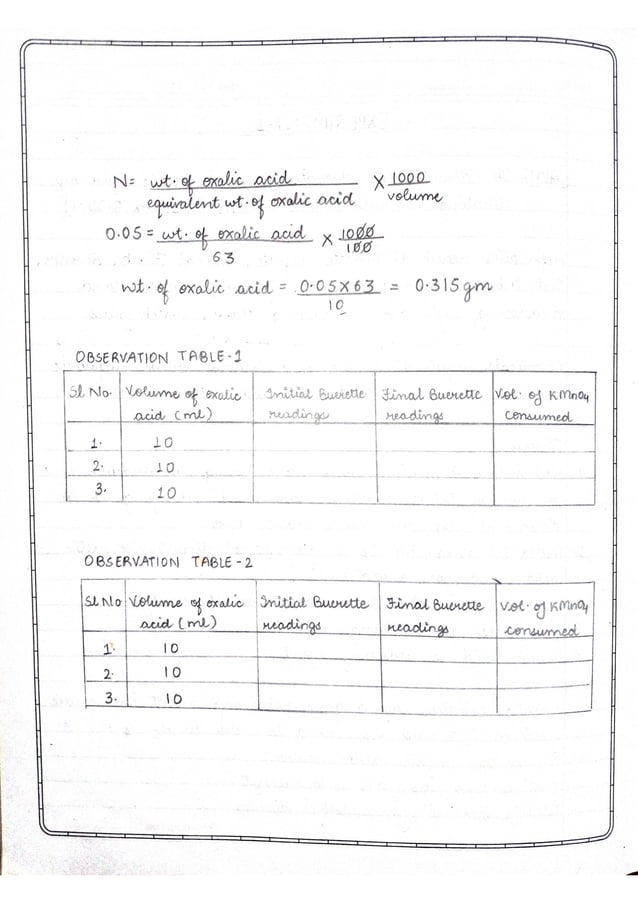 N= wt. of oxalic acid / equivalent wt. of oxalic acid X 1000 / volume
0.05 = wt. of oxalic acid / 63 X 1000 / 100
wt. of oxalic acid = 0.05X63 / 10 = 0.315gm
OBSERVATION TABLE-1
Sl No. Volume of oxalic acid (ml) Initial Buerette readings Final Buerette readings Vol. of KMnO4 Consumed
1. 10
2. 10
3. 10
OBSERVATION TABLE-2
Sl No Volume of oxalic acid (ml) Initial Buerette readings Final Buerette readings Vol. of KMnO4 consumed
1. 10
2. 10
3. 10